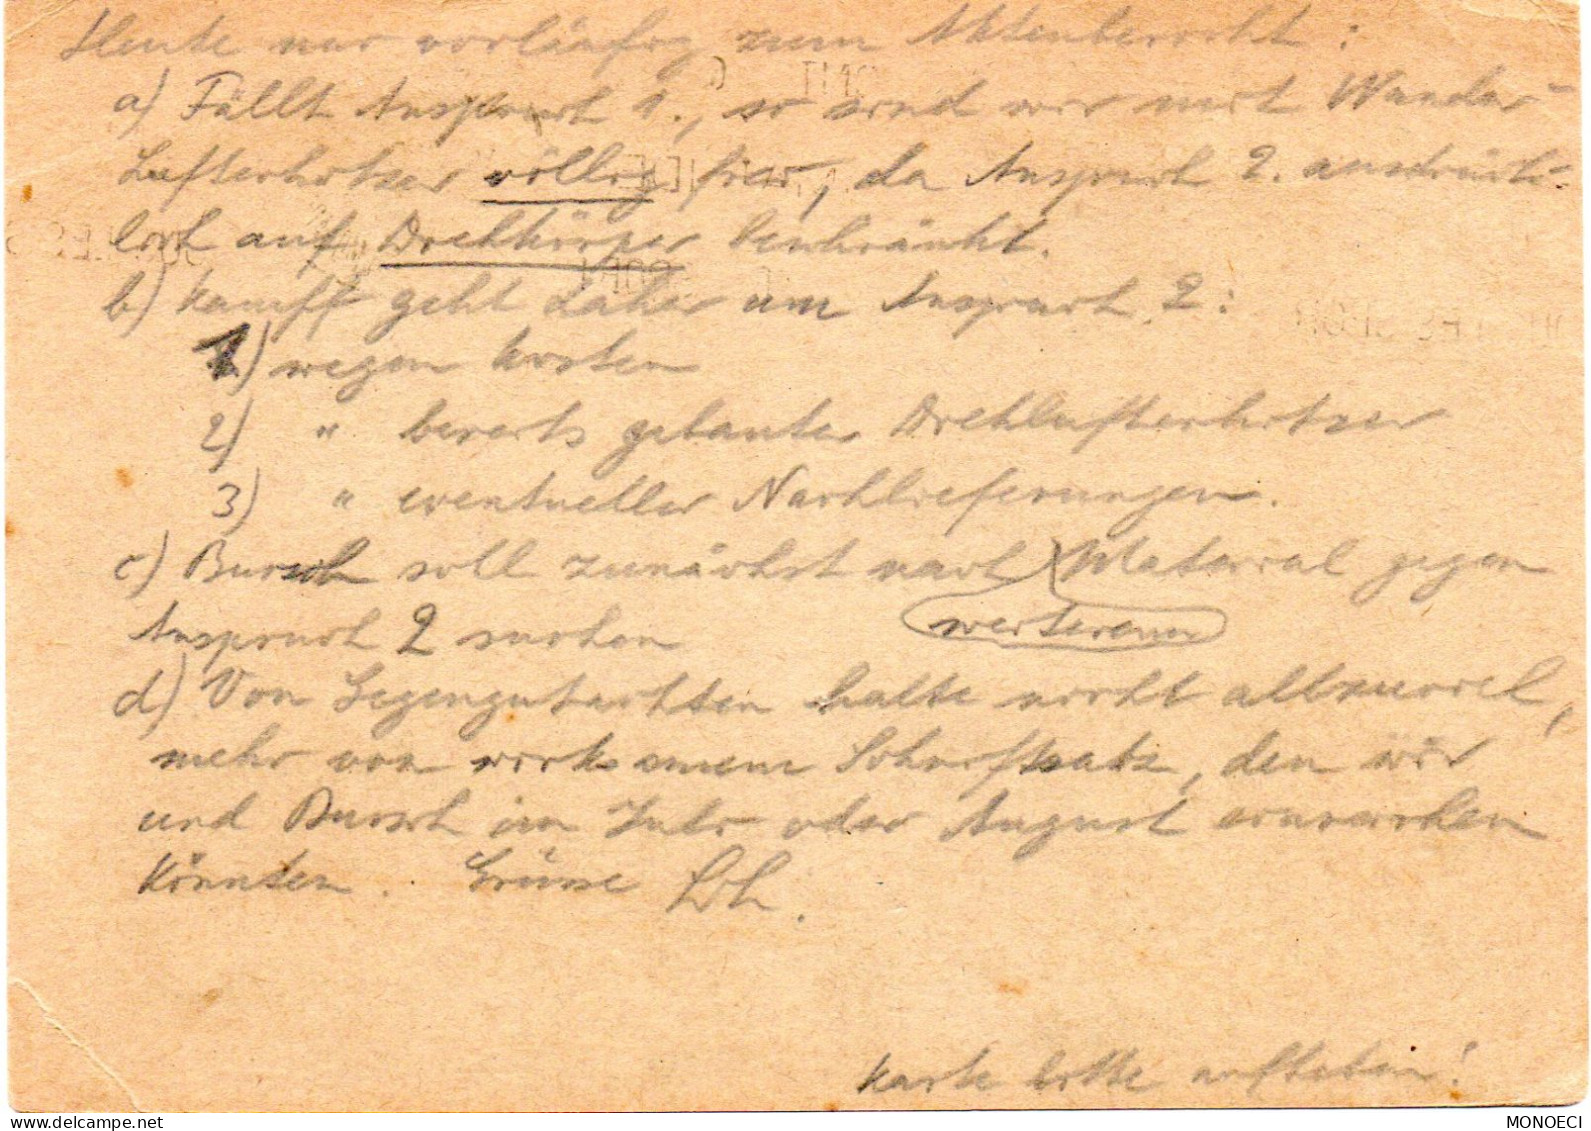 Heute nur vorläufig zum Aktenbericht :
a) Fällt Anspruch 1., so sind wir mit Wander-
Lufterhitzer völlig frei, da Anspruch 2. ausdrück-
lich auf Drehkörper beschränkt.
b) Kampf geht daher um Anspruch 2:
1) wegen Kosten
2) " bereits gebauter Drehlufterhitzer
3) " eventueller Nachlieferungen.
c) Bursch soll zunächst nach Material gegen
weiterem
Anspruch 2 suchen
d) Von Gegengutachten halte nicht allzuviel,
mehr von wirksamem Schriftsatz, den wir
und Bursch im Juli oder August einreichen
könnten. Grüsse
Karte bitte aufheben!
MONOECI